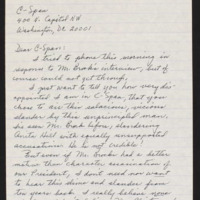 C-Span
400 N. Capitol NW
Washington, DC 20001
Dear C-Span:
I tried to phone this morning in
response to Mr. Brock's interview, but of
course could not get through.
I just want to tell you how very dis-
appointed I am in C-Span, that you
chose to air this salacious, vicious
slander by this unprincipled man.
He was Mr. Brock before, slandering
Anita Hill with equally unsupported
accusations. He is not credible!
But even if Mr. Brock had a better
motive than character assassination of
our President, I don't need nor want
to hear this dross and slander from
ten years back. I really believe your